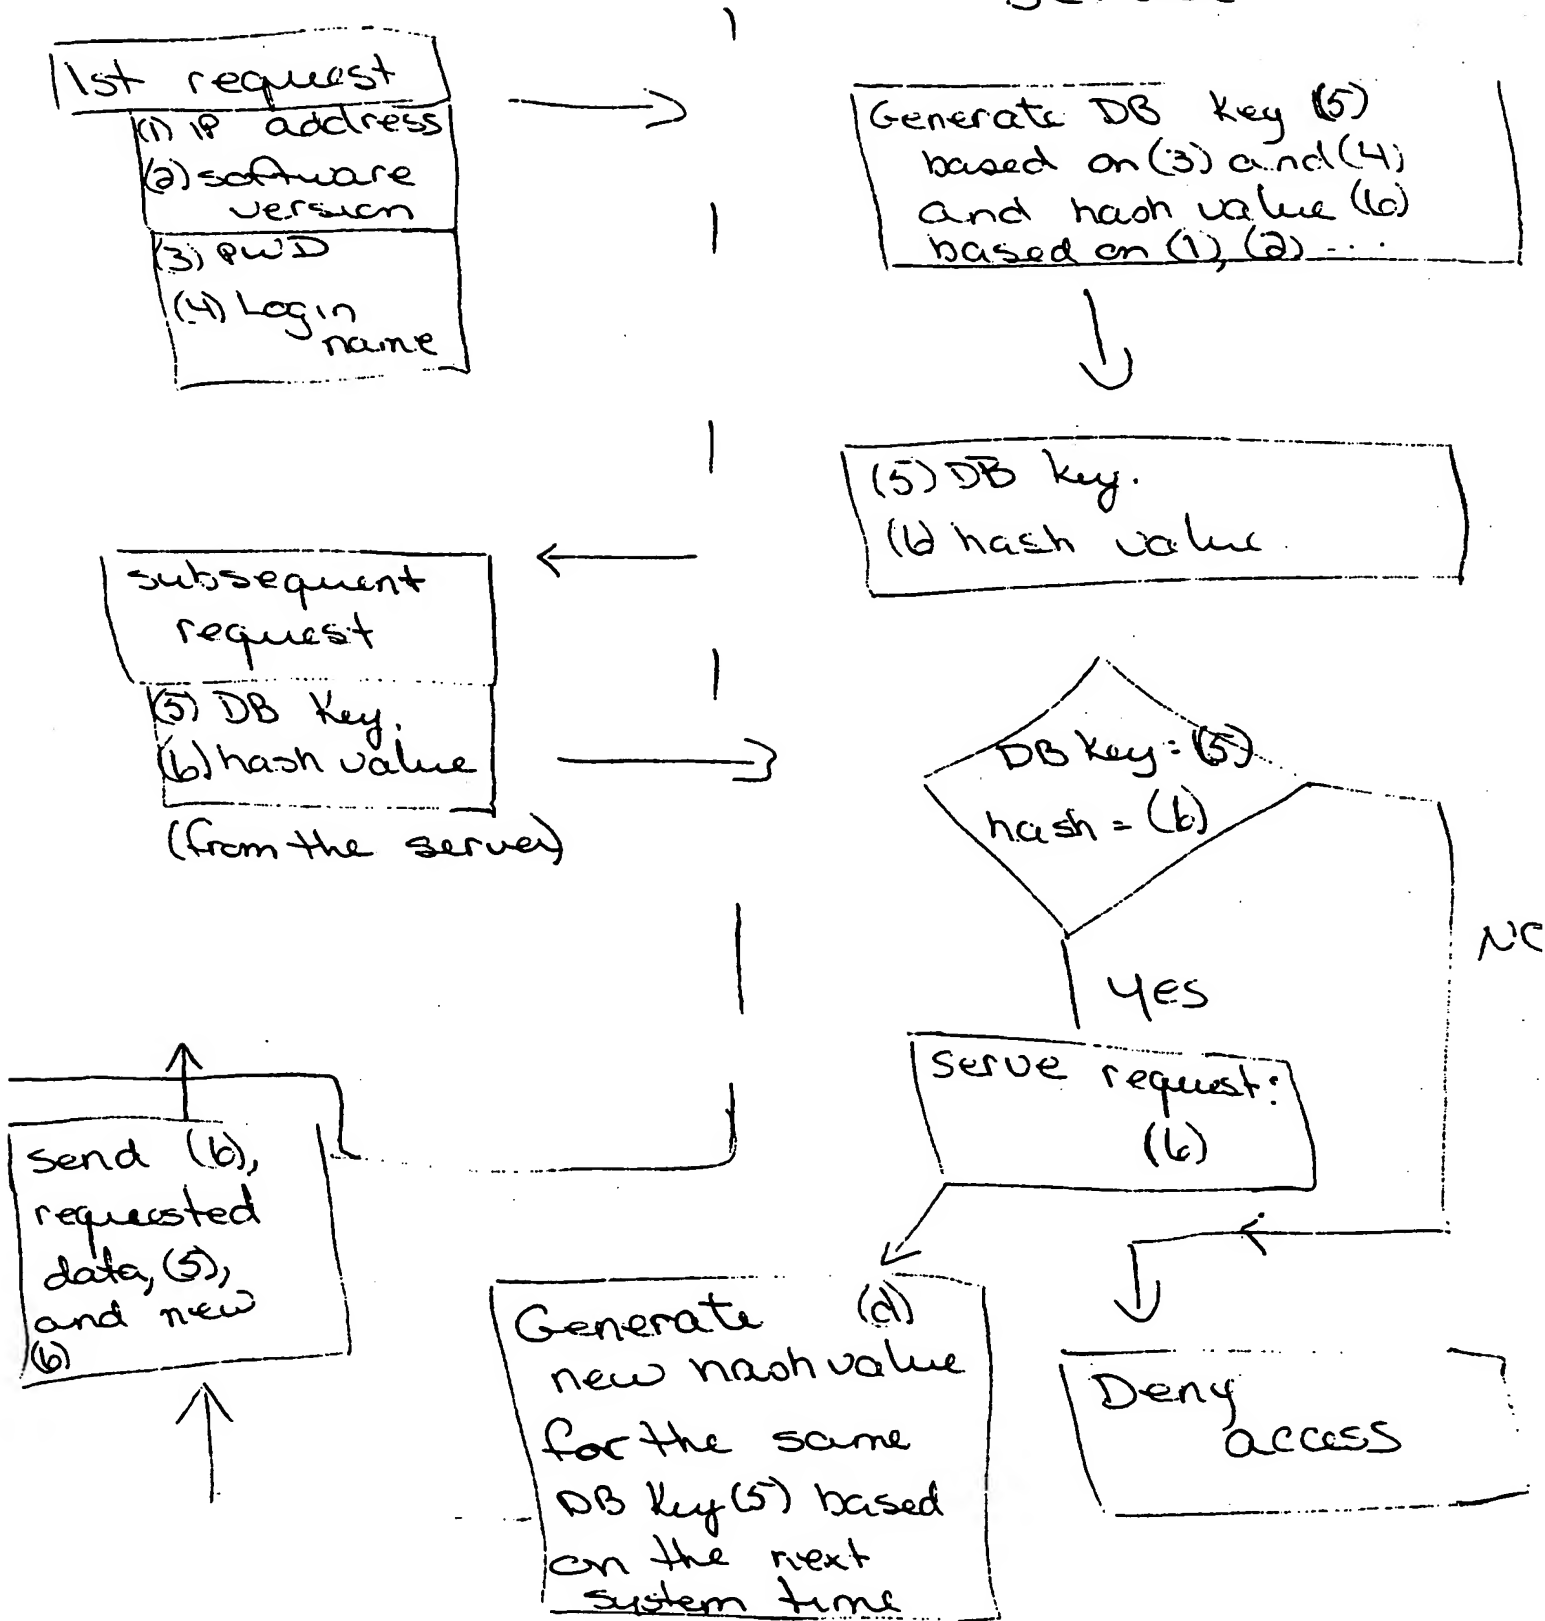 1st request
(1) IP address
(2) software
version
(3) PWD
(4) Login
name
Generate DB key (5)
based on (3) and (4)
and hash value (6)
based on (1), (2) ...
(5) DB key.
(6) hash value
subsequent
request
(5) DB key.
(6) hash value
(from the server)
DB key = (5)
hash = (6)
YES
serve request:
(6)
send (6),
requested
data, (5),
and new
(6)
Generate (d)
new hash value
for the same
DB key (5) based
on the next
system time
Deny
access